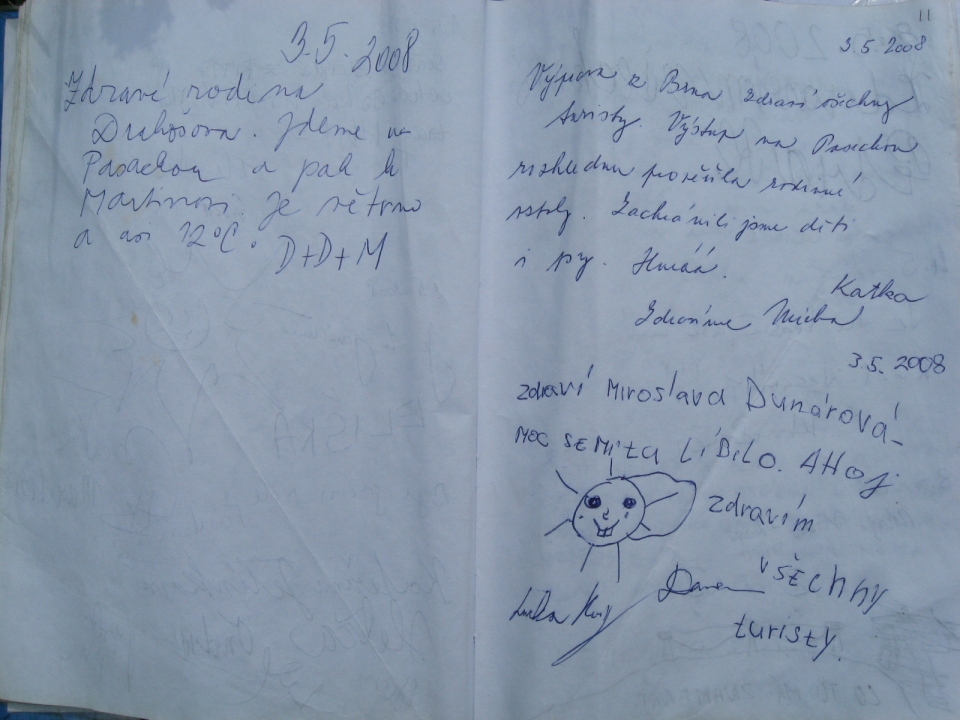 3.5.2008
Zdraví rodina
Drahošova. Jdeme na
Pasáckou a pak k
Martinovi. Je větrno
a asi 12°C. D+D+M
11
3.5.2008
Výprava z Brna zdraví všechny
turisty. Výstup na
rozhlednu prověřila rodinné
vztahy. Zachránili jsme děti
i psy. Hurááá.
Katka
Zdravíme
3.5.2008
zdraví Miroslava Dunárová-
MOC SE Mi tu LÍBILO. AHoj
zdravím
vŠEchny
turisty.